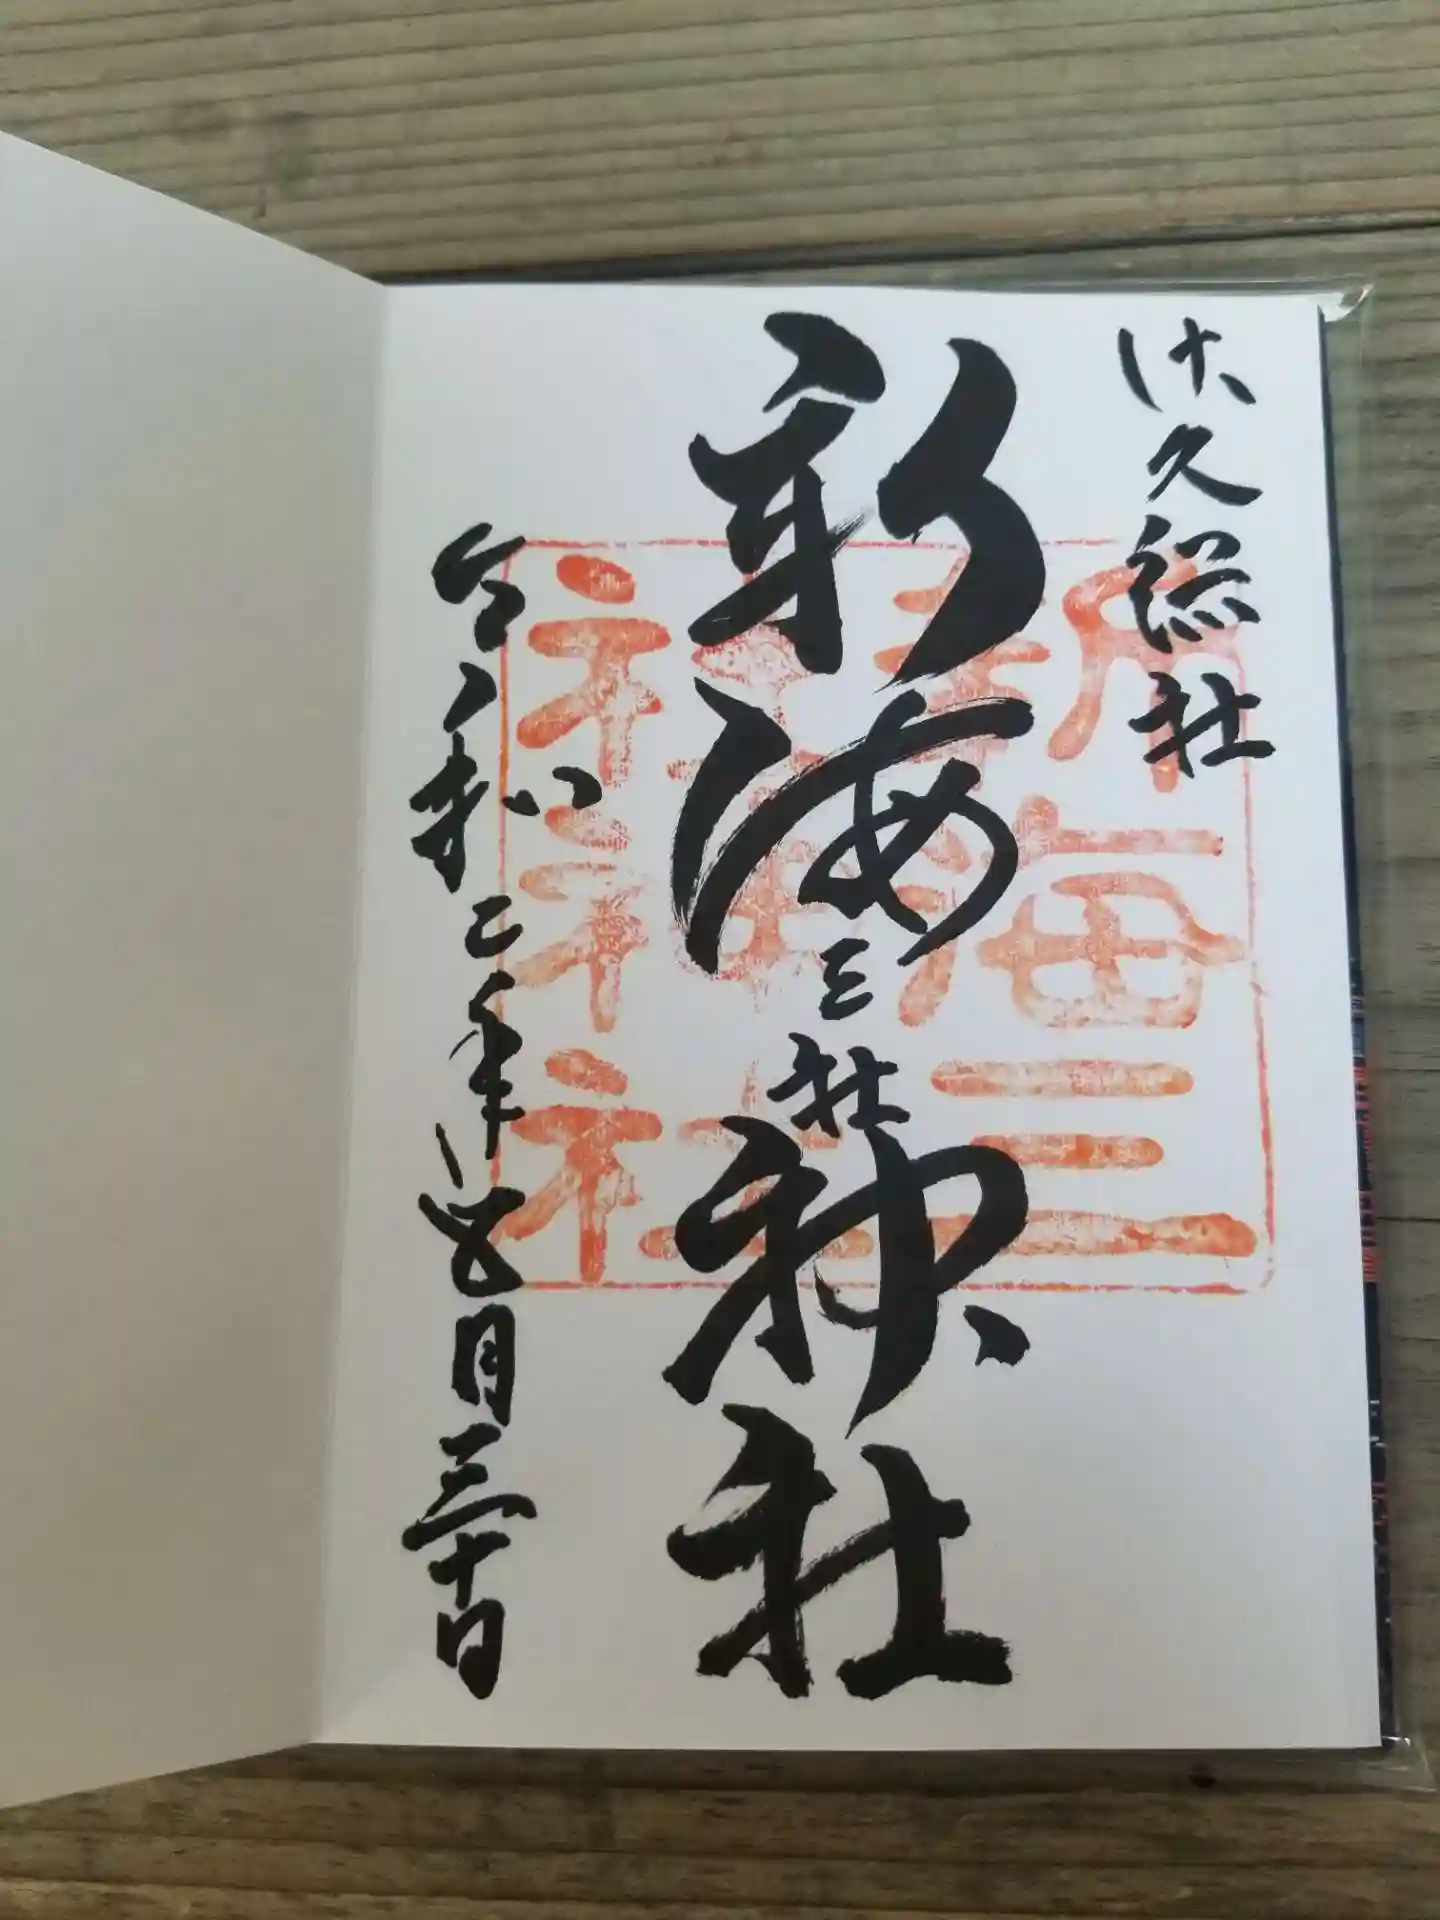 佐久総社
新海三社神社
令和二年 月三十日
新海三
社神社